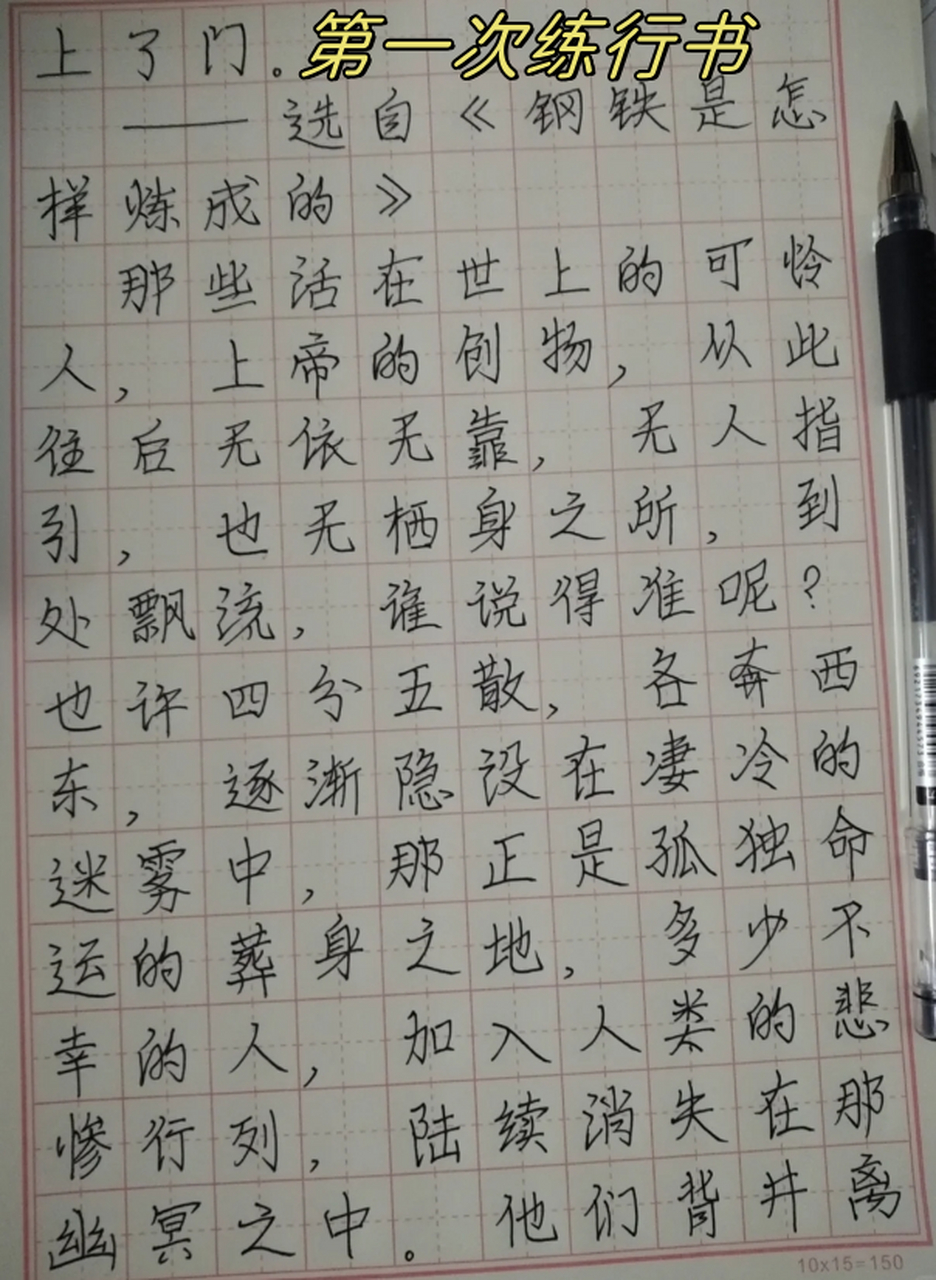 第一次练行书
上了门。
——选自《钢铁是怎
样炼成的》
那些活在世上的可怜
人，上帝的创物，从此
往后无依无靠，无人指
引，也无栖身之所，到
处飘流，谁说得准呢？
也许四分五散，各奔西
东，逐渐隐没在凄冷的
迷雾中，那正是孤独命
运的葬身之地，多少不
幸的人，加入人类的悲
惨行列，陆续消失在那
幽冥之中。他们背井离
10x15=150